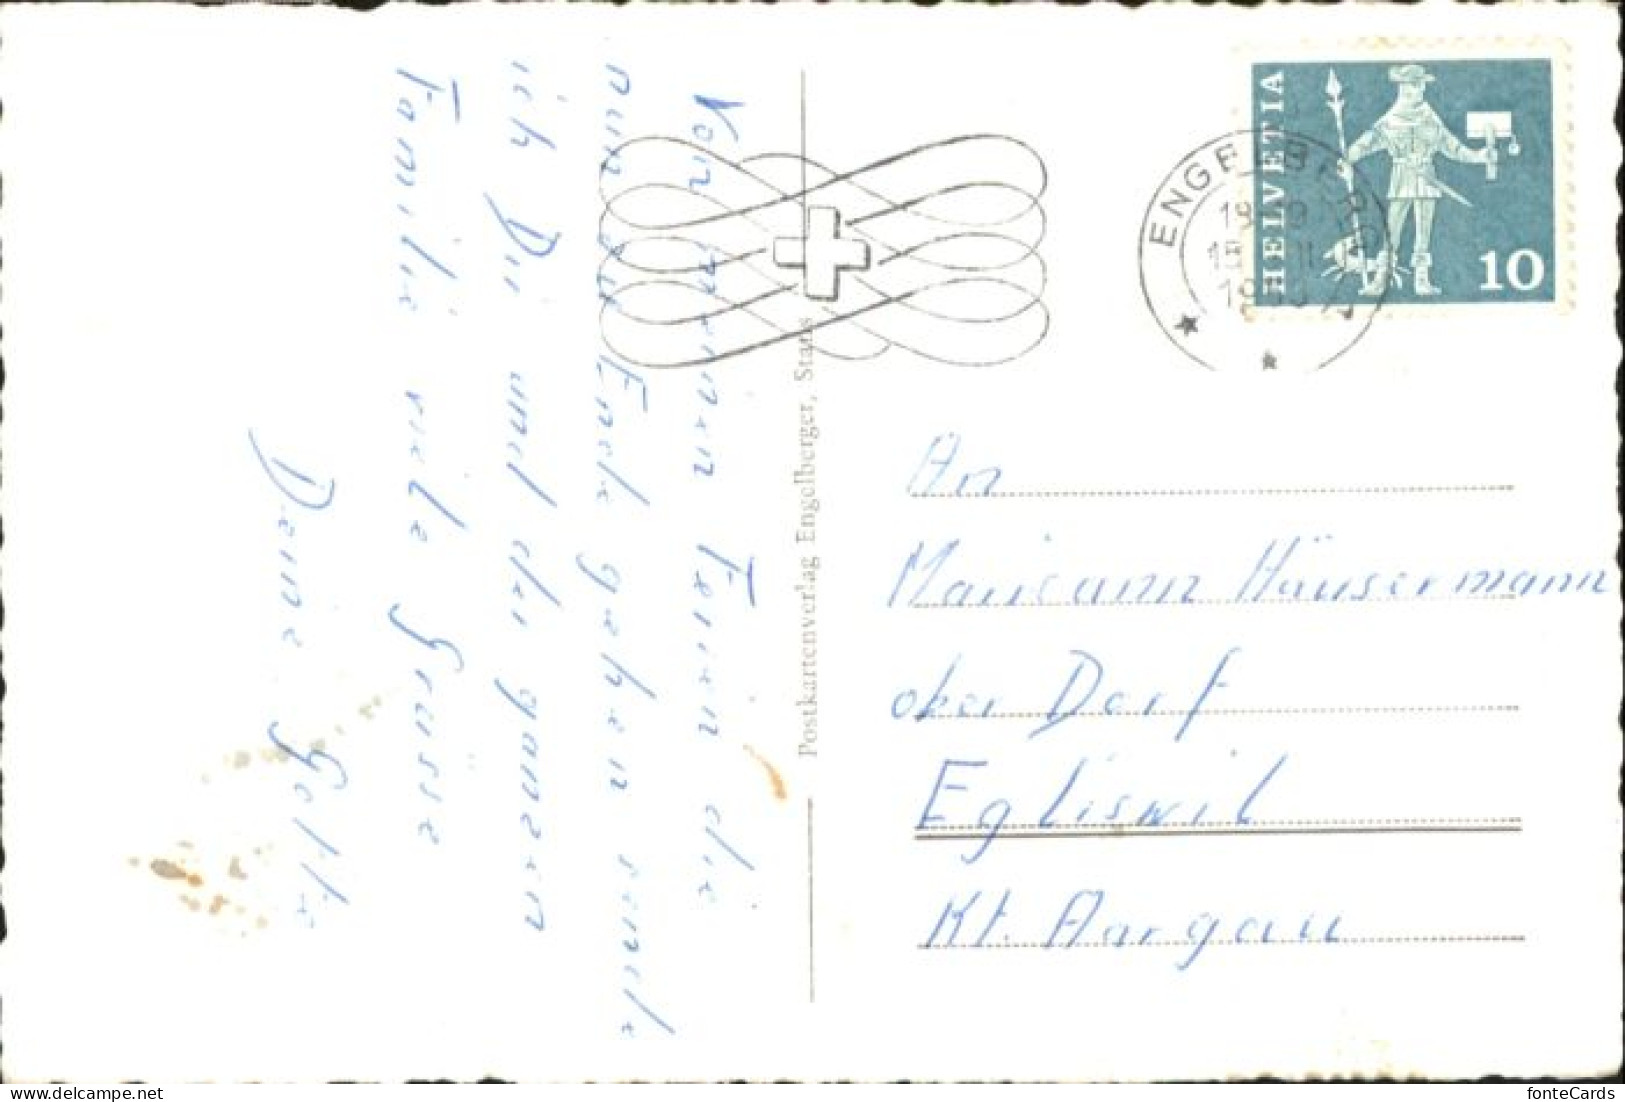 Von meinen Ferien die
nun zu Ende gehen sende
ich Dir und der ganzen
Familie viele Grüsse
Deine Gotte
Postkartenverlag Engelberger, Stans
HELVETIA
10
ENGELBERG
An
Mariann Häusermann
ober Dorf
Egliswil
Kt. Aargau
fonteCards